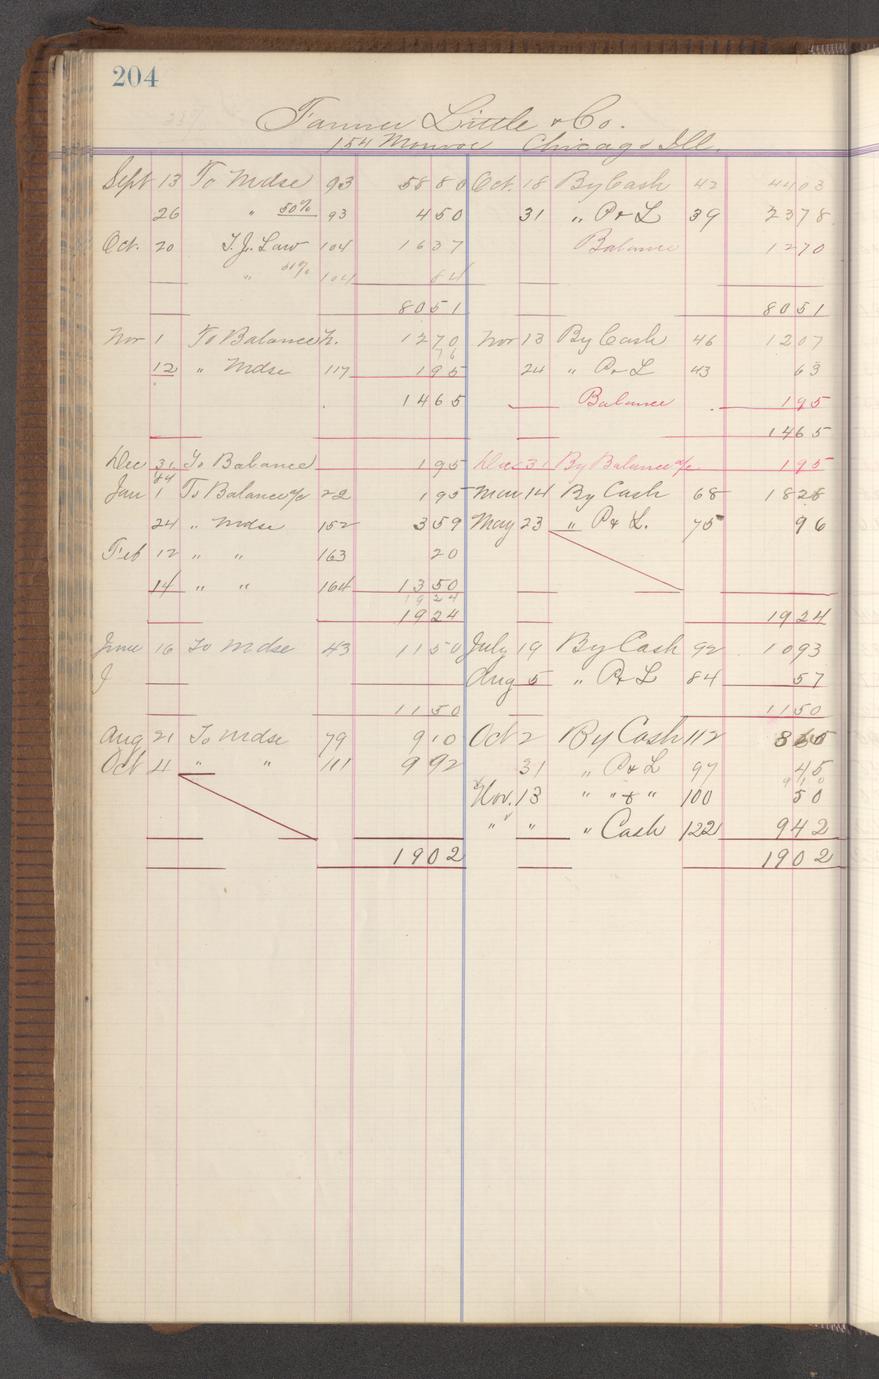 204
Tanner Little & Co.
154 Monroe Chicago Ill.
Sept 13 To Mdse 93 5880 Oct. 18 By Cash 42 4403
26 " 50% 93 450 31 " P & L 39 2378
Oct. 20 T. J. Law 104 1637 Balance 1270
" 104 84
8051 8051
Nov 1 To Balance 1270 Nov 13 By Cash 46 1207
76
12 " Mdse 117 195 24 " P & L 43 63
1465 Balance 195
1465
Dec 31 To Balance 195 Dec 31 By Balance % 195
84
Jan 1 To Balance % 22 195 Mar 14 By Cash 68 1828
24 " Mdse 152 359 May 23 " P & L. 75 96
Feb 12 " " 163 20
14 " " 164 1350
1924
1924 1924
June 16 To Mdse 43 1150 July 19 By Cash 92 1093
J Aug 5 " P & L 84 57
1150 1150
Aug 21 To Mdse 79 910 Oct 2 By Cash 112 865
Oct 4 " " 111 992 31 " P & L 97 45
910
Nov. 13 " " & " 100 50
" " " Cash 122 942
1902 1902